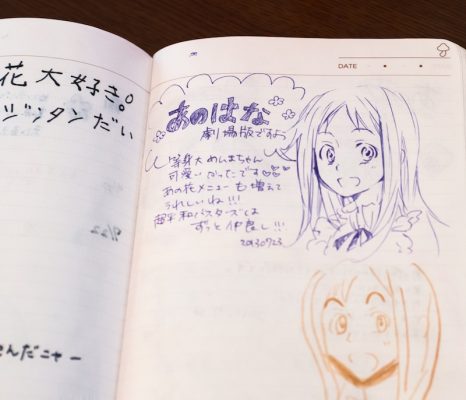 花大好き。
ジンタンだい
9/22
せんだニャー
DATE
あのはな
劇場版ですよ
等身大めんまちゃん
可愛いかったです
あの花メニューも増えて
うれしいね!!!
超平和バスターズは
ずっと仲良し!!!
20130923